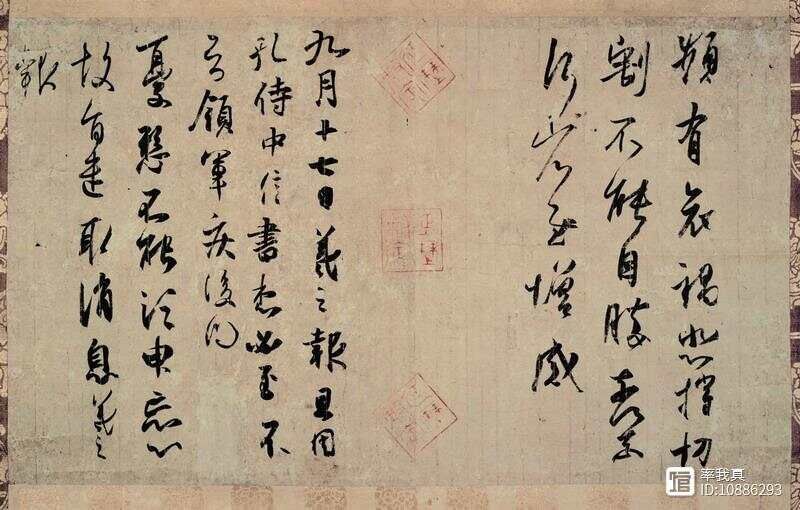 頻有哀禍悲摧切
割不能自勝奈何奈
何省慰增感
九月十七日羲之報且因
孔侍中信書想必至不
知領軍疾後問
憂懸不能須臾忘心
故旨遣取消息羲之
報
率我真
ID:10886293